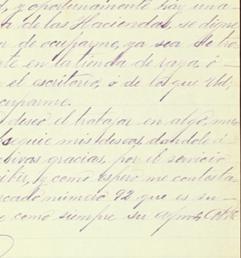 y oportunamente hay una
de las Haciendas, se digne
de ocuparme, ya sea de
en la tienda de raya ó
el escritorio, ó de los que Ud.
ocuparme.
deseo el trabajar en algo, me
mis deseos, dandole
gracias, por el servicio
y como espero me contesta
número 92 que es su
y como siempre su